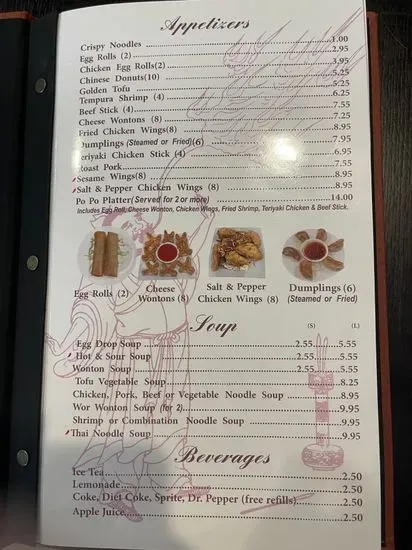 Appetizers
Crispy Noodles 1.00
Egg Rolls (2) 2.95
Chicken Egg Rolls(2) 3.95
Chinese Donuts(10) 5.25
Golden Tofu 5.25
Tempura Shrimp (4) 6.25
Beef Stick (4) 7.55
Cheese Wontons (8) 7.25
Fried Chicken Wings(8) 8.95
Dumplings (Steamed or Fried)(6) 7.95
Teriyaki Chicken Stick (4) 6.95
Roast Pork 7.55
Sesame Wings(8) 8.95
Salt & Pepper Chicken Wings (8) 8.95
Po Po Platter(Served for 2 or more) 14.00
Includes Egg Roll, Cheese Wonton, Chicken Wings, Fried Shrimp, Teriyaki Chicken & Beef Stick.
Egg Rolls (2)
Cheese
Wontons (8)
Salt & Pepper
Chicken Wings (8)
Dumplings (6)
(Steamed or Fried)
Soup (S) (L)
Egg Drop Soup 2.55 5.55
Hot & Sour Soup 2.55 5.55
Wonton Soup 2.55 5.55
Tofu Vegetable Soup 8.25
Chicken, Pork, Beef or Vegetable Noodle Soup 8.95
Wor Wonton Soup (for 2) 9.95
Shrimp or Combination Noodle Soup 9.95
Thai Noodle Soup 9.95
Beverages
Ice Tea 2.50
Lemonade 2.50
Coke, Diet Coke, Sprite, Dr. Pepper (free refills) 2.50
Apple Juice 2.50